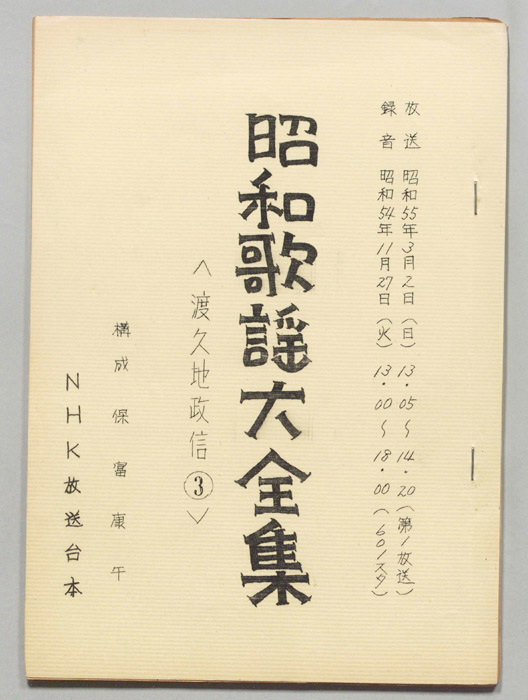 放送 昭和55年3月2日(日) 13・05〜14・20(第1放送)
録音 昭和54年11月27日(火) 13・00〜18・00(601スタ)
昭和歌謡大全集
〈渡久地政信③〉
構成保富康午
NHK放送台本